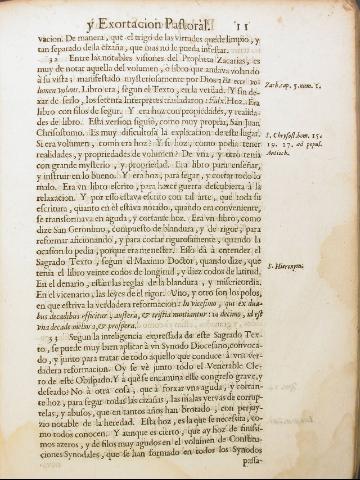 y Exortacion Pastoral. 11
vacion. De manera, que el trigo de las virtudes quede limpio, y
tan separado de la cizaña, que mas no le pueda infestar.
32 Entre las notables visiones del Propheta Zacarias, es
muy de notar aquella del volumen, ò libro que andava volando
à su vista; manifestado mysteriosamente por Dios: Et ecce vo-
lumen volans. Libro era, segun el Texto, en la verdad. Y sin de-
xar de serlo, los setenta interpretes trasladaron: Falx. Hoz. Era
libro con filos de segur. Y era hoz con propriedades, y realida-
des de libro. Esta version siguiò, como muy propria, San Juan
Chrisostomo. Es muy dificultosa la explicacion de este lugar.
Si era volumen, como era hoz? Y si hoz, como podia tener
realidades, y propriedades de volumen? De uno, y otro tenia
con grande mysterio, y propriedad. Era libro para enseñar,
y instruir en lo bueno. Y era hoz, para segar, y cortar todo lo
malo. Era un libro escrito, para hacer guerra descubierta à la
relaxacion. Y por esso estava escrito con tal arte, que toda su
escritura, quanto en èl estava notado, quando era conveniente,
se transformava en aguda, y cortante hoz. Era un libro, como
dize San Geronimo, compuesto de blandura, y de rigor, para
reformar aficionando, y para cortar rigurosamente, quando la
ocasion lo pedia, porque era menester. Esso dà à entender el
Sagrado Texto, segun el Maximo Doctor, quando dize, que
tenia el libro veinte codos de longitud, y diez codos de latitud.
En el denario, estàn las reglas de la blandura, y misericordia.
En el vicenario, las leyes de el rigor. Uno, y otro son los polos,
en que estriva la verdadera reformacion: In vicesimo, que ex dua-
bus decadibus efficitur, austera, & tristia monstrantur: in decimo, id est
una decade meliora, & prospera.
33 Segun la inteligencia expressada de este Sagrado Tex-
to, se puede muy bien aplicar à un Synodo Diocesano, convoca-
do, y junto para tratar de todo aquello que conduce à una ver-
dadera reformacion. Oy se vè junto todo el Venerable Cle-
ro de este Obispado. Y à què se encamina esse congresso grave, y
deseado? No à otra cosa, que à forxar una aguda, y cortan-
te hoz, para segar todas las cizañas, las malas yervas de corrup-
telas, y abusos, que en tantos años han brotado, con perjuy-
zio notable de la heredad. Esta hoz, es la que se necesita, co-
mo todos conocen. Y aunque es cierto, que ay hoz de finissi-
mos azeros, y de filos muy agudos en el volumen de Constitu-
ciones Synodales, que se han formado en todos los Synodos
passa-
Zach. cap. 5. num. 1.
S. Chrysost. hom. 15.
19. 27. ad popul.
Antioch.
S. Hieronym.